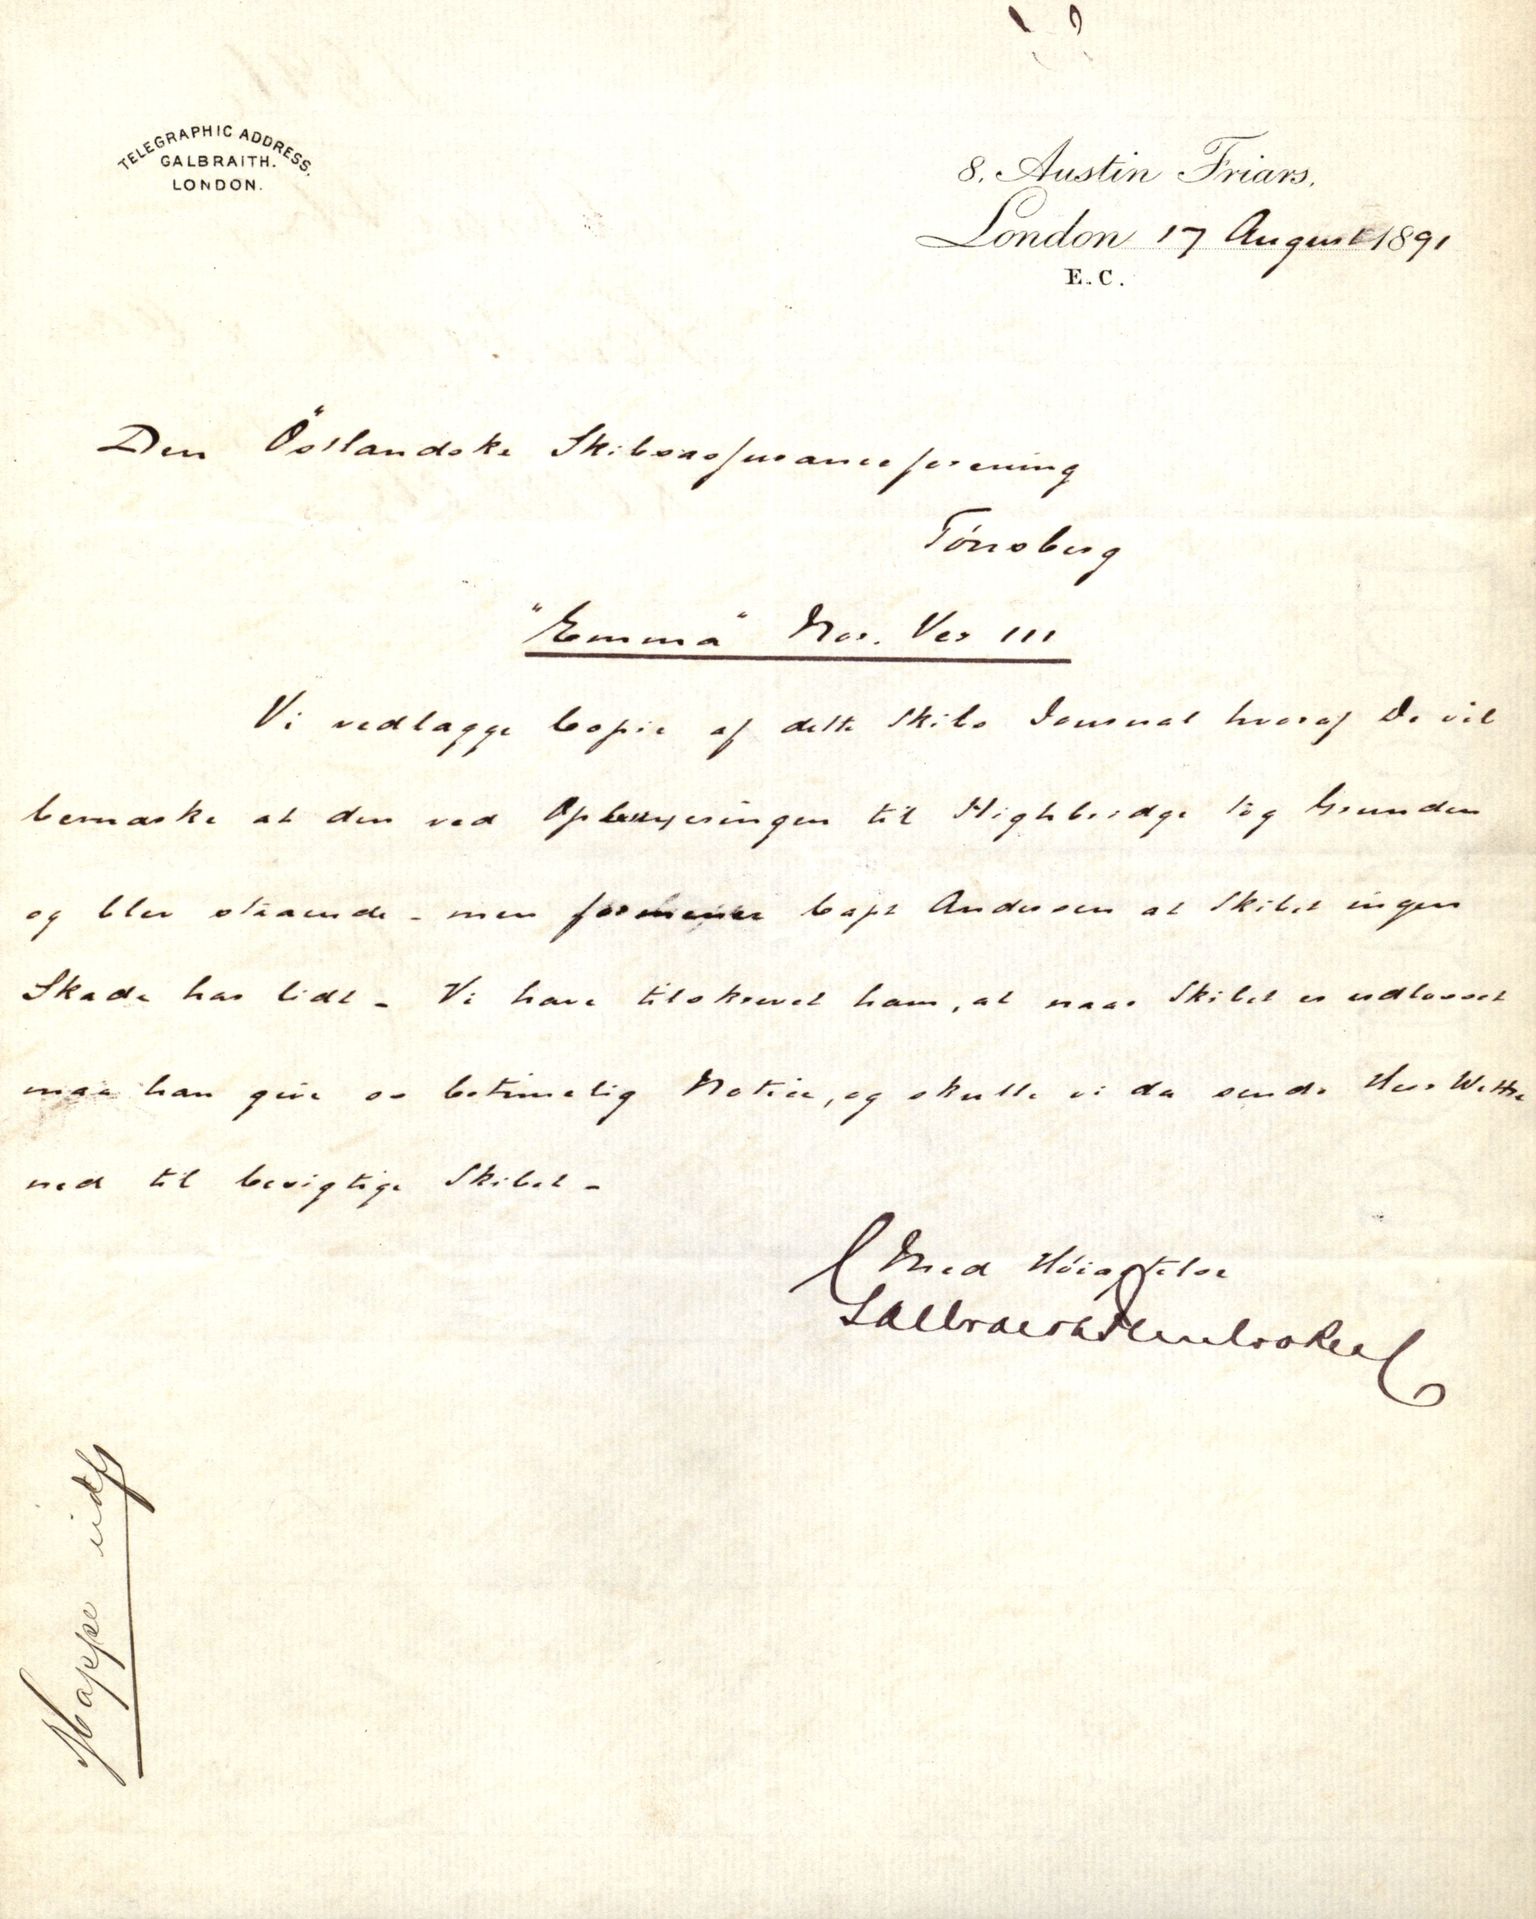 TELEGRAPHIC ADDRESS.
GALBRAITH.
LONDON.
8, Austin Friars,
London 17 August 1891
E.C.
Den Östlandske Skibsassuranceforening
Tönsberg
"Emma" Nor. Ves III
Vi vedlægge Copie af dette Skibs Journal hvoraf De vil
bemærke at den ved Opbuxeringen til Highbridge tog Grunden
og blev staaende - men formener Capt Andersen at Skibet ingen
Skade har lidt - Vi have tilskrevet ham, at naar Skibet er udlosset
maa han give os betimelig Notice, og skulle vi da sende Herr Wettre
ned til besigtige Skibet -
Med Höiagtelse
Galbraith Pembroke & C
Mappe